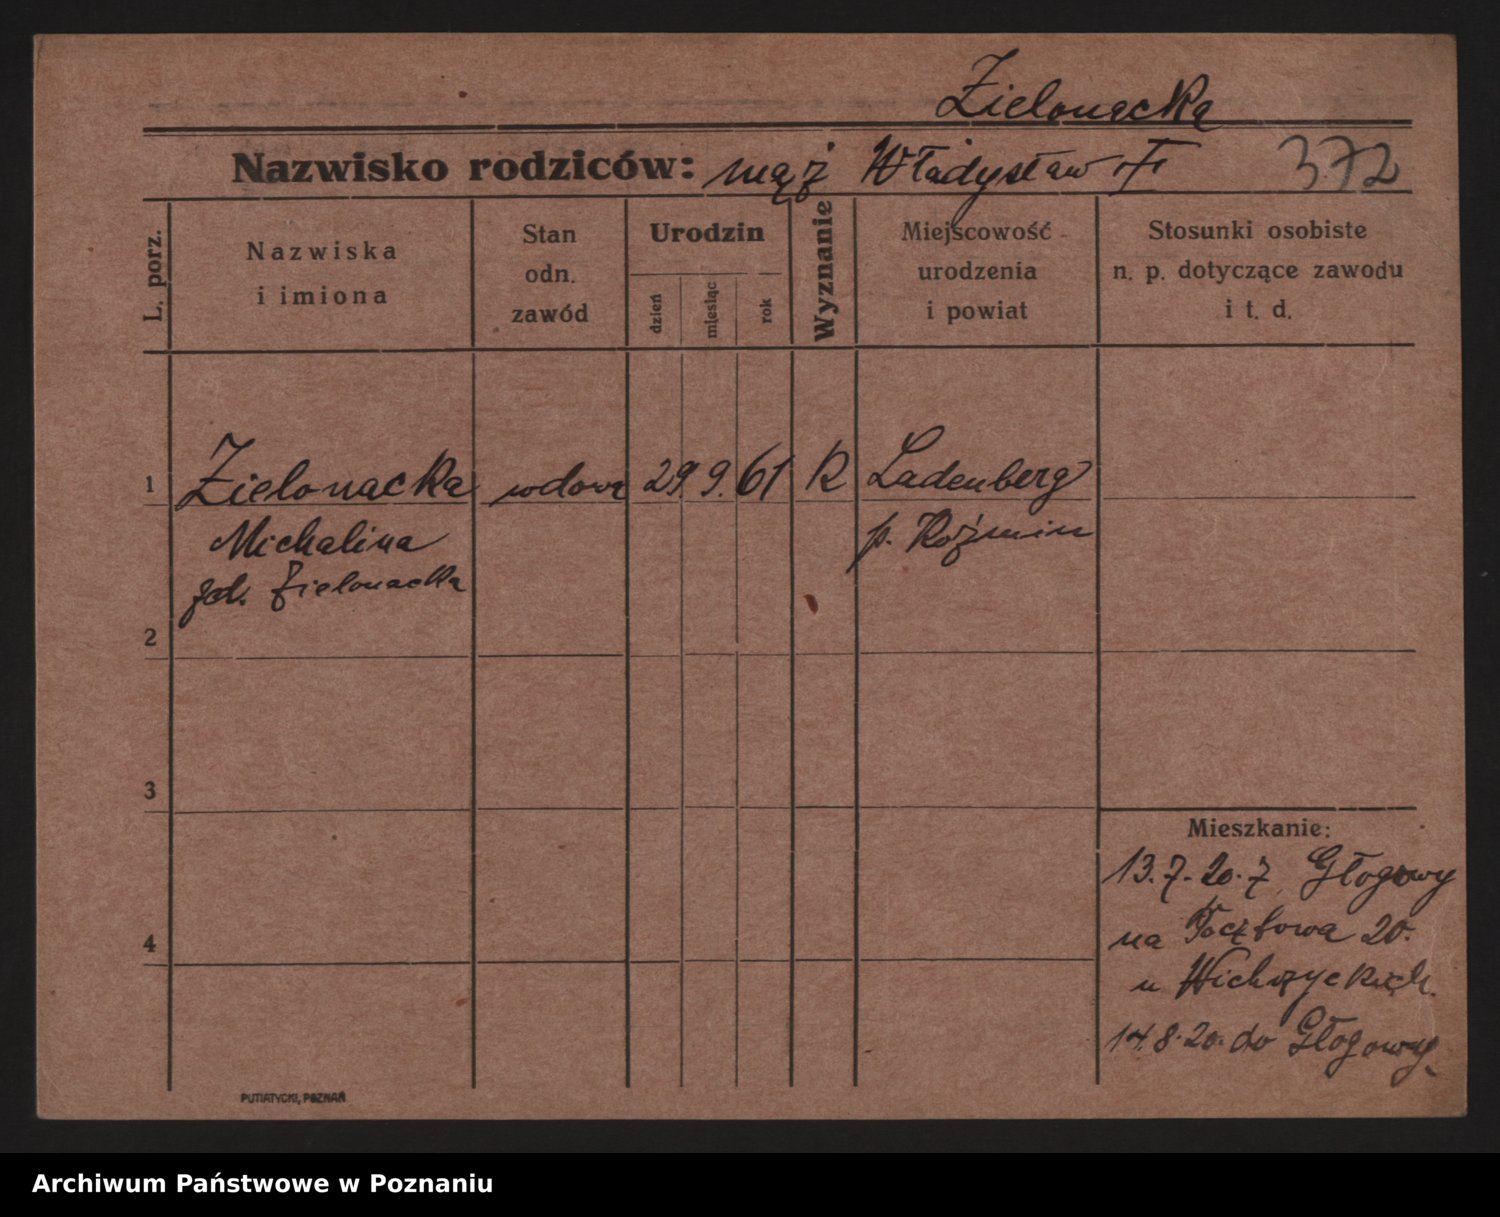 Zielonacka
Nazwisko rodziców: mąż Władysław †
372
L. porz.
Nazwiska
i imiona
Stan
odn.
zawód
Urodzin
dzień
miesiąc
rok
Wyznanie
Miejscowość
urodzenia
i powiat
Stosunki osobiste
n. p. dotyczące zawodu
i t. d.
1 Zielonacka wdowa 29. 9. 61 R Ladenberg
Michalina p. Koźmin
Zielonacka
2
3
Mieszkanie:
13.7.20. z Głogowy
na Pocztowa 20.
4
u Wichrzyckich.
14.8.20. do Głogowy.
PUTIATYCKI, POZNAŃ
Archiwum Państwowe w Poznaniu